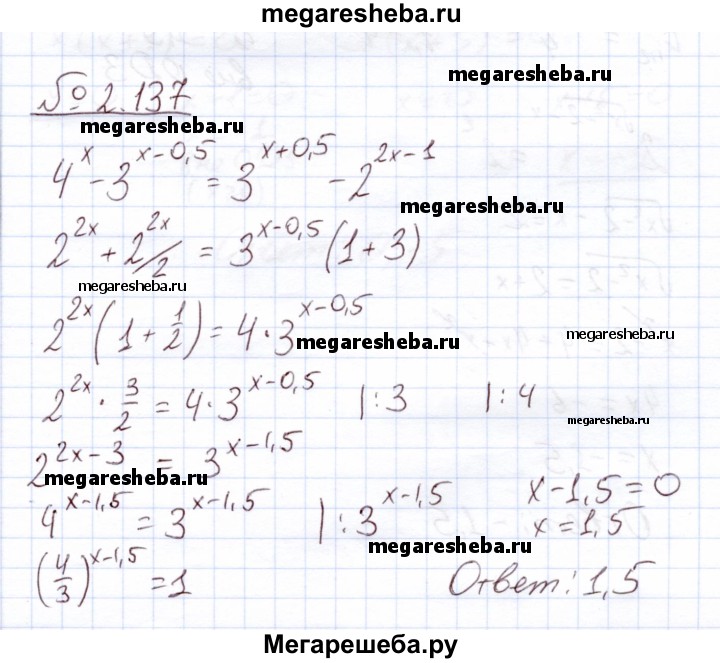 megaresheba.ru
megaresheba.ru
№ 2.137
megaresheba.ru
4^x - 3^(x-0,5) = 3^(x+0,5) - 2^(2x-1)
megaresheba.ru
2^(2x) + 2^(2x)/2 = 3^(x-0,5) (1+3)
megaresheba.ru
2^(2x) (1 + 1/2) = 4·3^(x-0,5)
megaresheba.ru
megaresheba.ru
2^(2x) · 3/2 = 4·3^(x-0,5) |:3 |:4
megaresheba.ru
2^(2x-3) = 3^(x-1,5)
megaresheba.ru
4^(x-1,5) = 3^(x-1,5) |:3^(x-1,5) x-1,5=0
x=1,5
megaresheba.ru
(4/3)^(x-1,5) = 1 Ответ: 1,5
Мегарешеба.ру